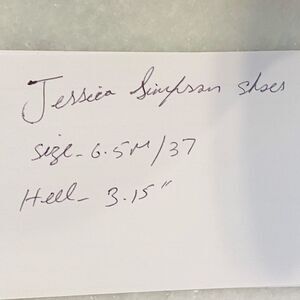 Jessica Simpson shoes
size- 6.5M/37
Hell- 3.15"